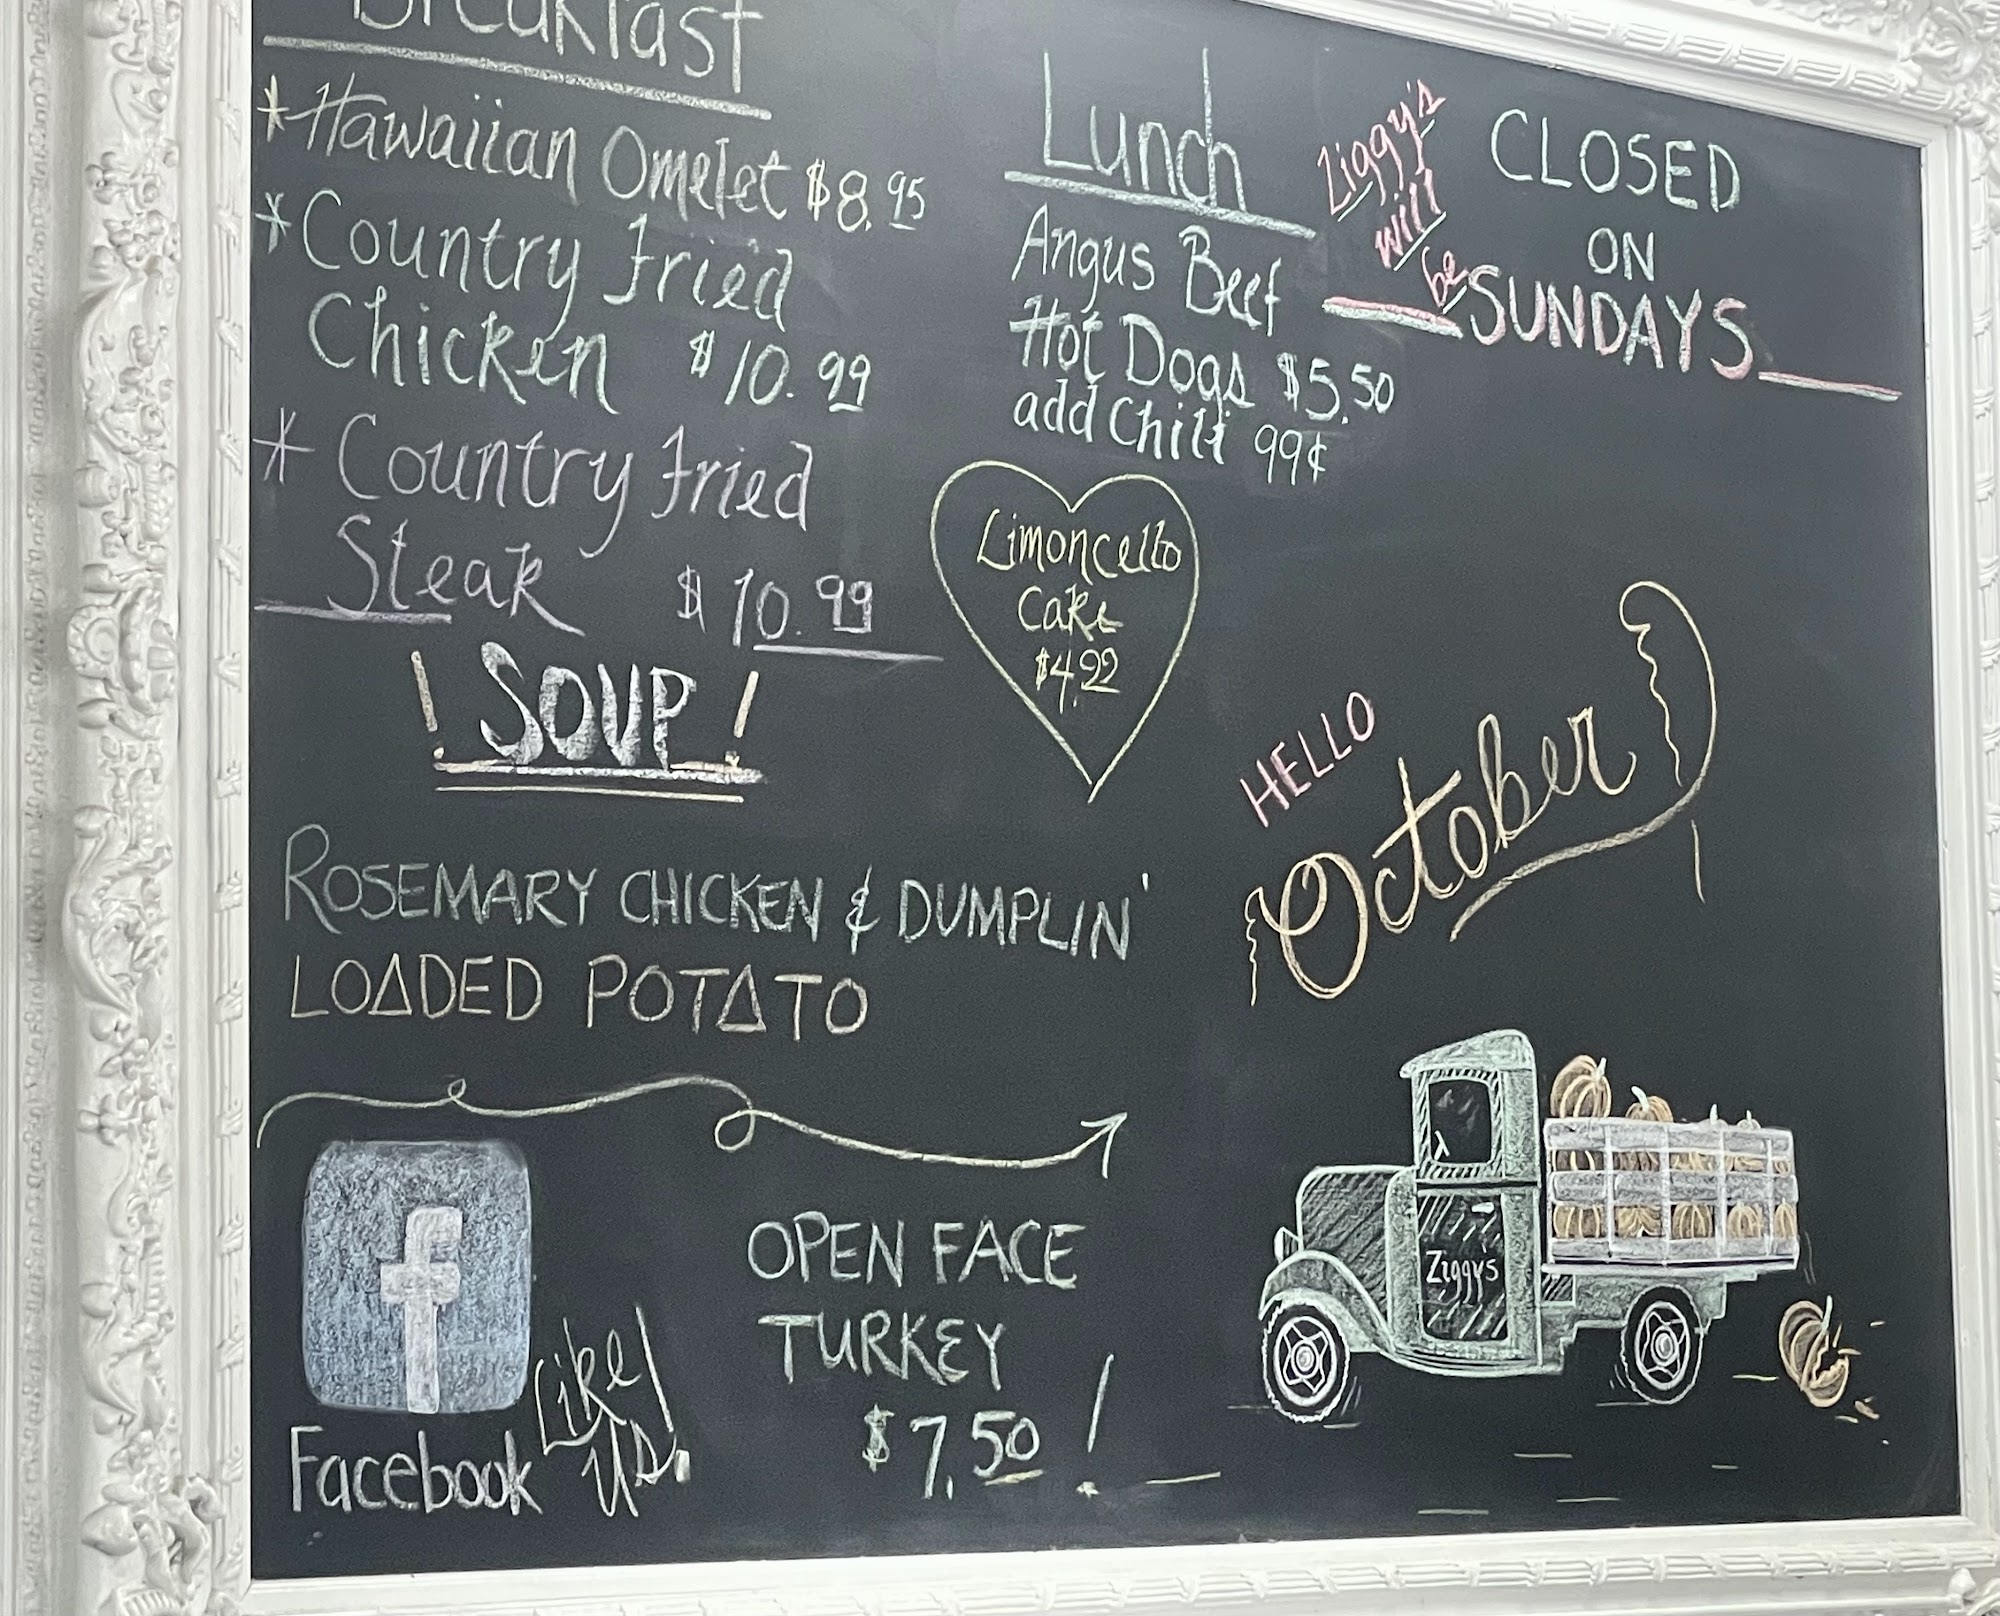 Breakfast
*Hawaiian Omelet $8.95
*Country Fried
Chicken $10.99
* Country Fried
Steak $10.99
Lunch
Angus Beef
Hot Dogs $5.50
add Chili 99¢
Ziggy's
will
be
CLOSED
ON
SUNDAYS
Limoncello
Cake
$4.99
! SOUP !
ROSEMARY CHICKEN & DUMPLIN'
LOADED POTATO
HELLO
October
f
Facebook
Like
US!
OPEN FACE
TURKEY
$7.50!
Ziggys